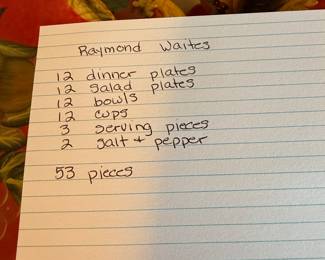 Raymond Waites
12 dinner plates
12 salad plates
12 bowls
12 cups
3 serving pieces
2 salt + pepper
53 pieces